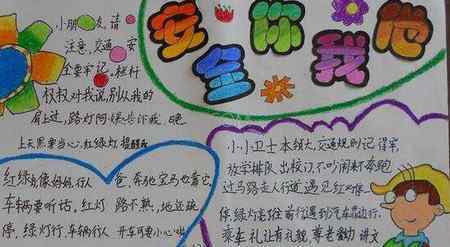 安全你我他
小朋友,请
注意,交通安
全要牢记。栏杆
叔叔对我说,别从我的
身上过,路灯阿姨告诉我,晚
上天黑要当心,红绿灯提醒我
红绿灯像妈妈,行人
车辆要听话。红灯
停,绿灯行,车辆行人
爸,奔驰宝马也靠它,
路不熟,地还滑
开车可要小心
小小卫士本领大,交通规则记得牢,
放学排队出校门,不吵闹来不奔跑
过马路走人行道,遇见红灯停
停,绿灯亮往前行,遇到汽车靠边行,
乘车礼让有礼貌,尊老爱幼讲文